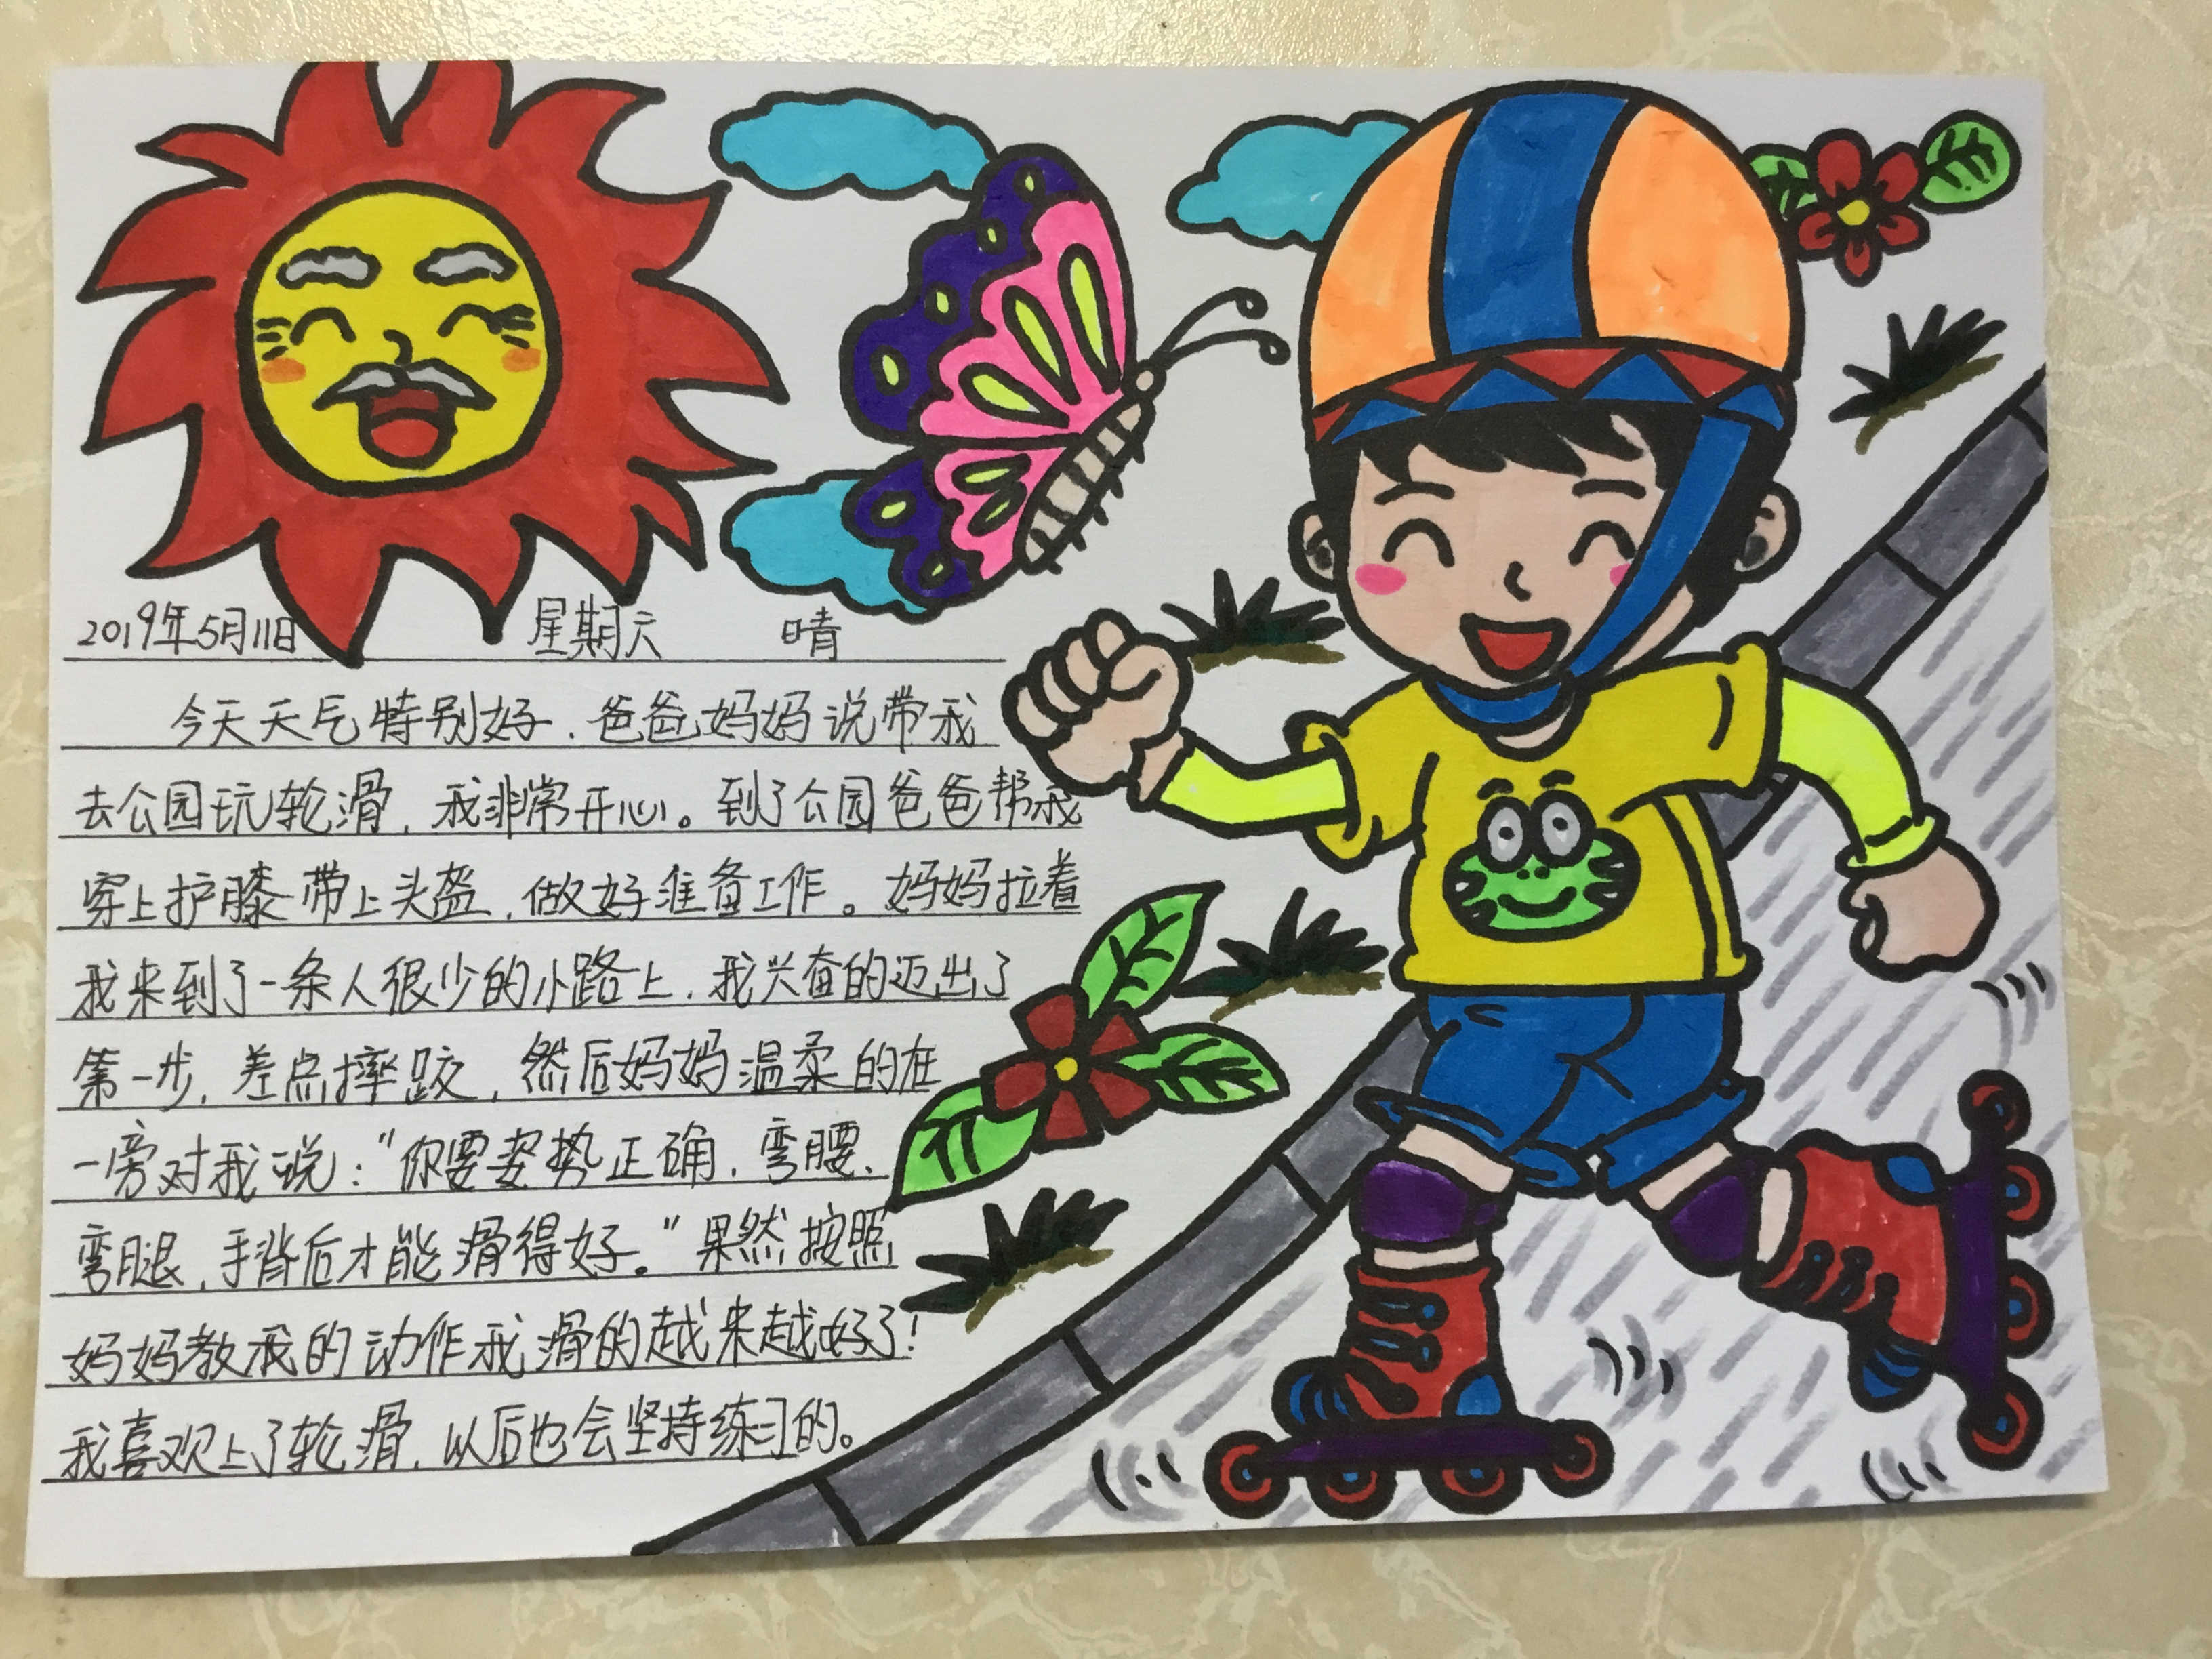 2019年5月11日 星期六 晴
今天天气特别好，爸爸妈妈说带我
去公园玩轮滑，我非常开心。到了公园爸爸帮我
穿上护膝带上头盔，做好准备工作。妈妈拉着
我来到了一条人很少的小路上，我兴奋的迈出了
第一步，差点摔跤，然后妈妈温柔的在
一旁对我说：“你要姿势正确，弯腰、
弯腿，手背后才能滑得好。”果然按照
妈妈教我的动作我滑的越来越好了！
我喜欢上了轮滑，以后也会坚持练习的。